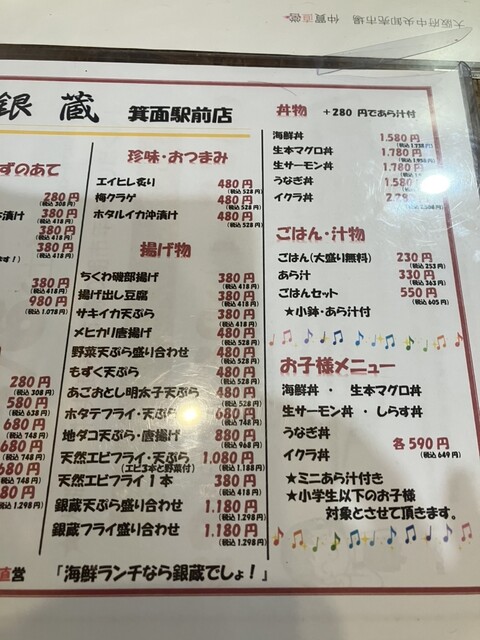 大阪府中央卸売市場 仲買直営
銀蔵 箕面駅前店
ずのあて
280円
(税込308円)
漬け 380円
(税込418円)
380円
(税込418円)
380円
(税込418円)
ます!)
380円
(税込418円)
980円
(税込1.078円)
280円
(税込308円)
580円
(税込638円)
680円
(税込748円)
680円
(税込748円)
680円
(税込748円)
80円
(税込1.298円)
珍味・おつまみ
エイヒレ炙り 480円
(税込528円)
梅クラゲ 480円
(税込528円)
ホタルイカ沖漬け 480円
(税込528円)
揚げ物
ちくわ磯部揚げ 380円
(税込418円)
揚げ出し豆腐 380円
(税込418円)
サキイカ天ぷら 380円
(税込418円)
メヒカリ唐揚げ 480円
(税込528円)
野菜天ぷら盛り合わせ 480円
(税込528円)
もずく天ぷら 480円
(税込528円)
あごおとし明太子天ぷら 480円
(税込528円)
ホタテフライ・天ぷら 680円
(税込748円)
地ダコ天ぷら・唐揚げ 880円
(税込968円)
天然エビフライ・天ぷら 1.080円
(エビ3本と野菜付) (税込1.188円)
天然エビフライ1本 380円
(税込418円)
銀蔵天ぷら盛り合わせ 1.180円
(税込1.298円)
銀蔵フライ盛り合わせ 1.180円
(税込1.298円)
丼物 +280円であら汁付
海鮮丼 1.580円
(税込1.738円)
生本マグロ丼 1.780円
(税込1.958円)
生サーモン丼 1.780円
うなぎ丼 1.580
イクラ丼
ごはん・汁物
ごはん(大盛り無料) 230円
(税込253円)
あら汁 330円
(税込363円)
ごはんセット 550円
(税込605円)
★小鉢・あら汁付
お子様メニュー
海鮮丼・生本マグロ丼
生サーモン丼・しらす丼
うなぎ丼
イクラ丼 各590円
(税込649円)
★ミニあら汁付き
★小学生以下のお子様
対象とさせて頂きます。
直営 「海鮮ランチなら銀蔵でしょ!」